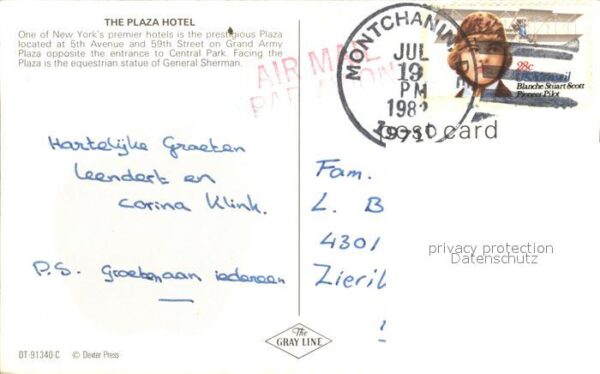 THE PLAZA HOTEL
One of New York's premier hotels is the prestigious Plaza
located at 5th Avenue and 59th Street on Grand Army
Plaza opposite the entrance to Central Park. Facing the
Plaza is the equestrian statue of General Sherman.
AIR MAIL
PAR AVION
MONTCHANIN
JUL
19
PM
198
19710
28c
USAirmail
Blanche Stuart Scott
Pioneer Pilot
post card
Hartelijke Groeten
Leendert en
Corina Klink.
P.S. Groeten aan iedereen
Fam.
L. B
4301
Zieri
privacy protection
Datenschutz
The
GRAY LINE
DT-91340-C © Dexter Press